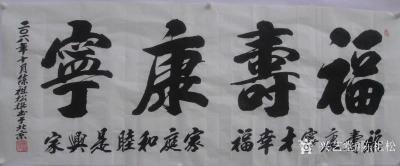 福壽康寧
福壽康寧才幸福
家庭和睦是興家
二〇一八年十月陳祖松書于北京
兴艺堂
陈祖松